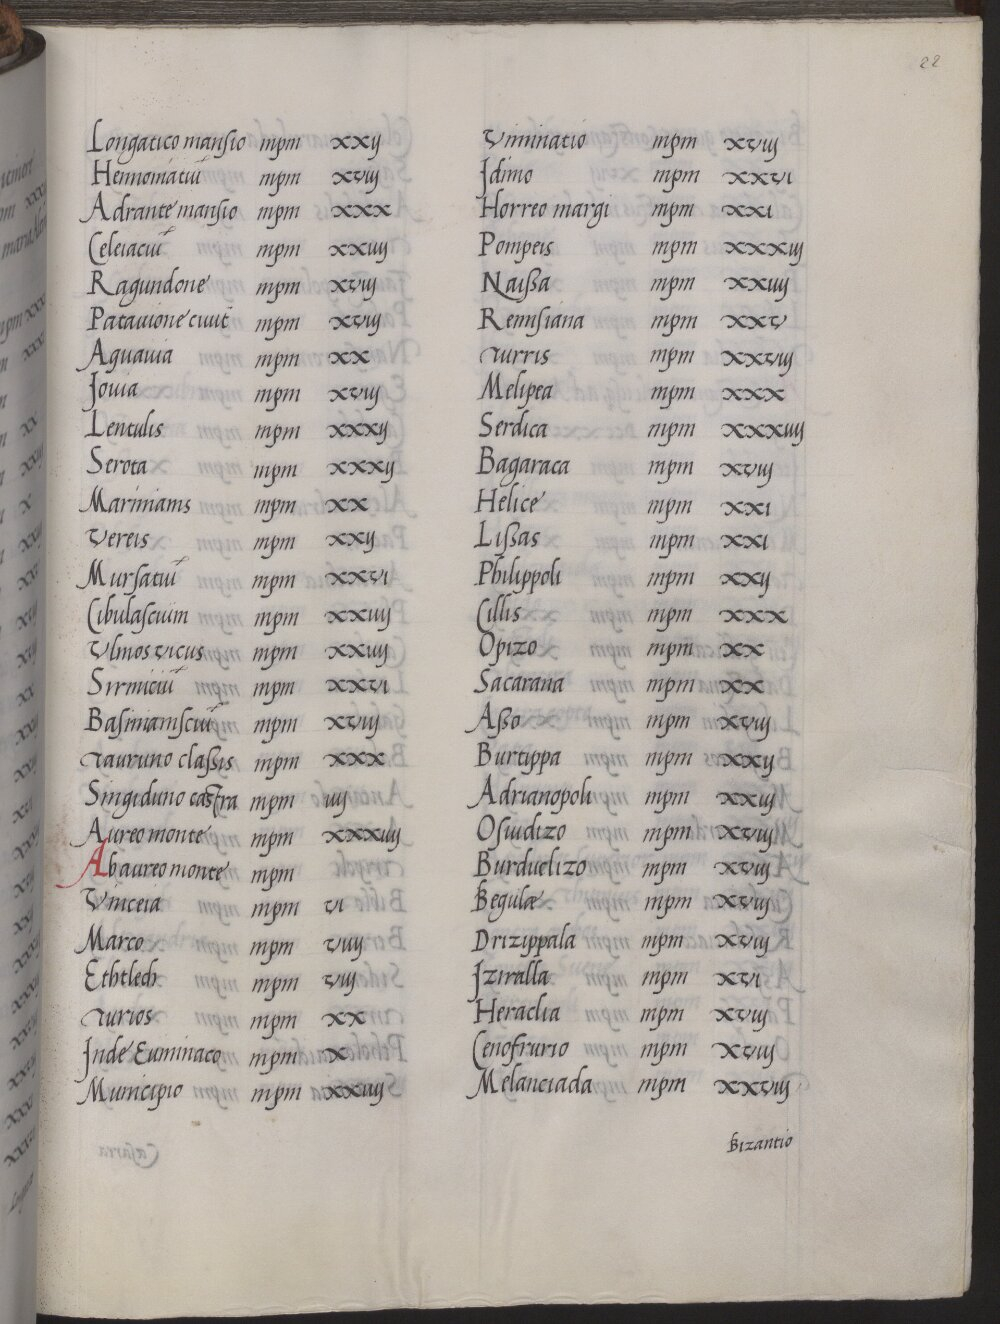 22
Longatico mansio mpm xxij
Hennomatiũ mpm xviij
Adrante mansio mpm xxx
Celeiaciũ mpm xxiiij
Ragundone mpm xviij
Patauione ciuit mpm xviij
Aguauia mpm xx
Jouia mpm xviij
Lentulis mpm xxxij
Serota mpm xxxij
Mariniams mpm xx
Vereis mpm xxij
Mursatiũ mpm xxvi
Cibulascium mpm xxiiij
Vlmos vicus mpm xxiiij
Sirmiciũ mpm xxvi
Basiniamsciũ mpm xviij
Tauruno classis mpm xxx
Singiduno castra mpm iiij
Aureo monte mpm xxxiiij
Ab aureo monte mpm
Vinceia mpm vi
Marco mpm viiij
Ethtlech mpm viij
Turios mpm xx
Inde Euminaco mpm x
Municipio mpm xxiiij
Viminatio mpm xviij
Idimo mpm xxvi
Horreo margi mpm xxi
Pompeis mpm xxxiij
Naissa mpm xxiiij
Remisiana mpm xxv
Turris mpm xxviij
Melipea mpm xxx
Serdica mpm xxxiiij
Bagaraca mpm xviij
Helice mpm xxi
Lissas mpm xxi
Philippoli mpm xxij
Cillis mpm xxx
Opizo mpm xx
Sacarana mpm xx
Asso mpm xviij
Burtippa mpm xxij
Adrianopoli mpm xxiij
Osuidizo mpm xviij
Burduelizo mpm xviij
Begulæ mpm xviij
Drizippala mpm xviij
Iziralla mpm xvi
Heraclia mpm xviij
Cenofrurio mpm xviij
Melanciada mpm xxviij
Bizantio